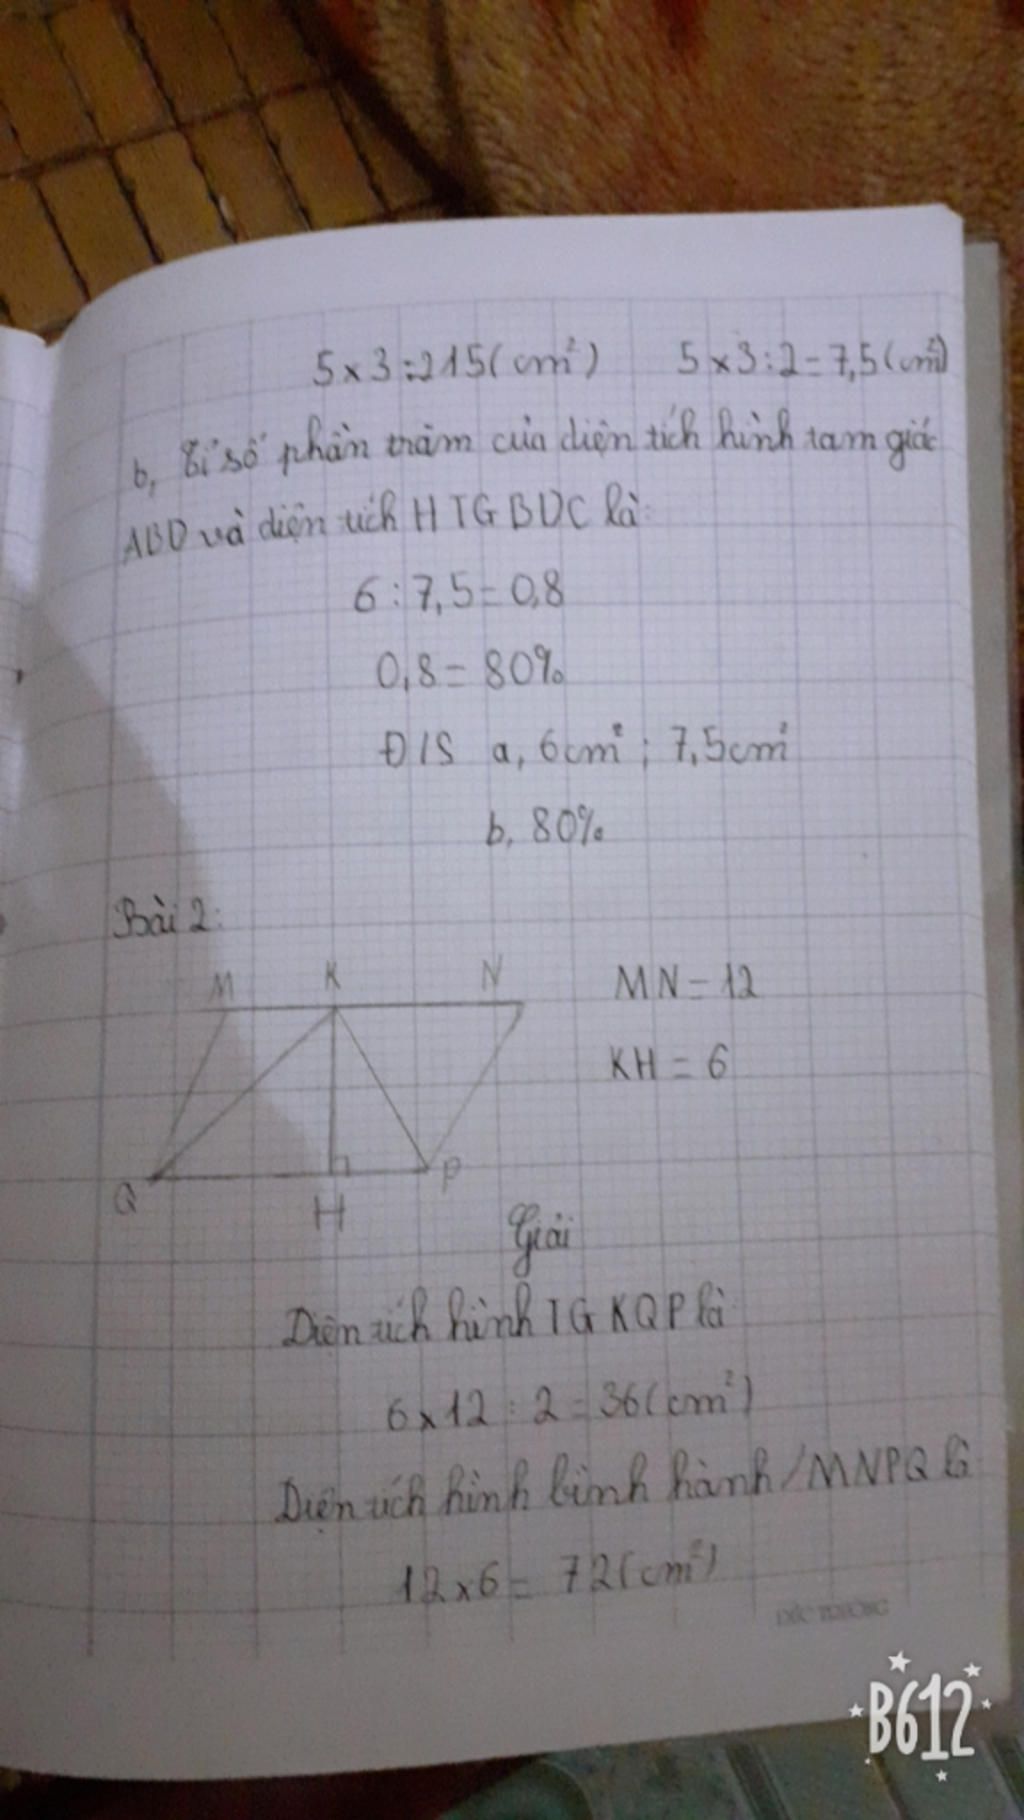 5 x 3 : 2 15 (cm²) 5 x 3 : 2 = 7,5 (cm²)
b, Tỉ số phần trăm của diện tích hình tam giác
ABD và diện tích HTG BDC là:
6 : 7,5 = 0,8
0,8 = 80%
Đ/S a, 6cm² ; 7,5cm²
b, 80%
Bài 2:
M K N MN = 12
KH = 6
Q H P
Giải
Diện tích hình TG KQP là
6 x 12 : 2 = 36 (cm²)
Diện tích hình bình hành MNPQ là
12 x 6 = 72 (cm²)
B612